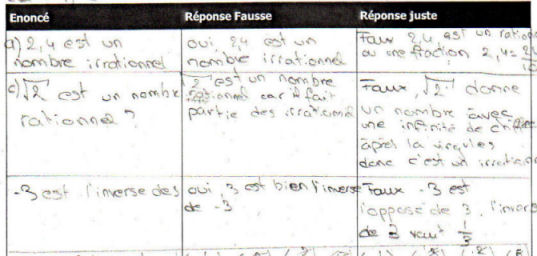 Enoncé
Réponse Fausse
Réponse juste
a) 2,4 est un
nombre irrationnel
oui, 2,4 est un
nombre irrationnel
Faux 2,4 est un ration
ou une fraction 2,4= 24/10
c) √2 est un nombre
rationnel ?
√2 est un nombre
rationnel car il fait
partie des irrationnel
Faux, √2 donne
un nombre avec
une infinité de chiffre
après la virgules
donc c'est un irration
-3 est l'inverse des
oui, 3 est bien l'inverse
de -3
Faux -3 est
l'opposé de 3, l'invers
de 3 vaut 1/3